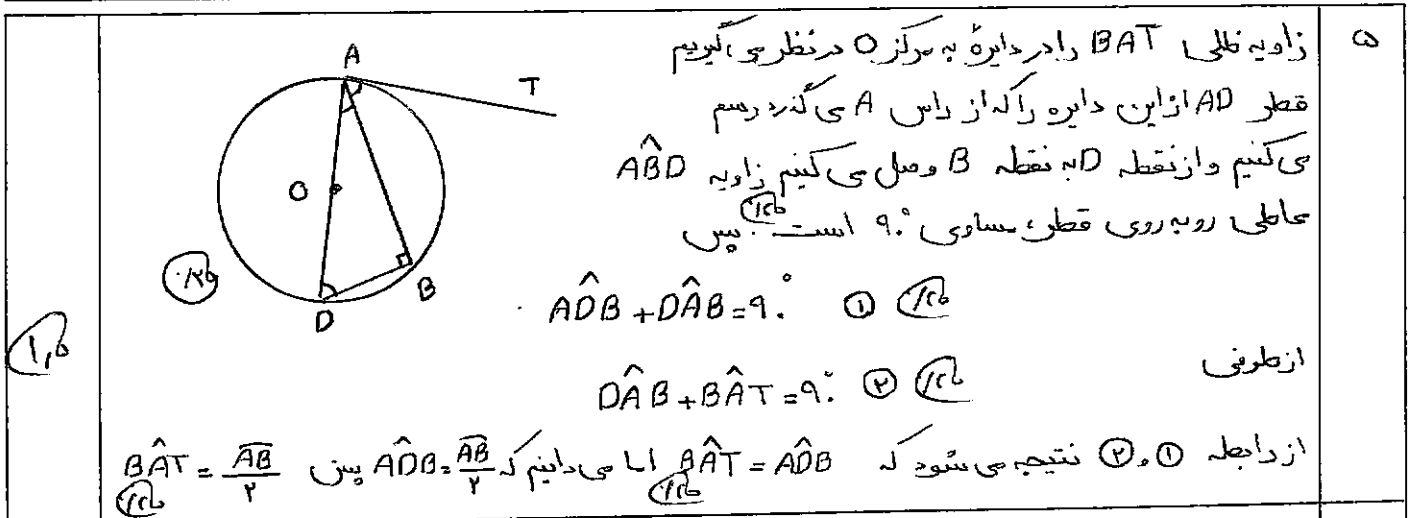 ۵
زاویه ظلی BAT را در دایرهٔ به مرکز O در نظر می گیریم
قطر AD از این دایره را که از راس A می گذرد رسم
می کنیم و از نقطه D به نقطه B وصل می کنیم زاویه AB̂D
محاطی روبه روی قطر، مساوی ۹۰° است ۰/۲۵ پس
AD̂B + DÂB = ۹۰° ① ۰/۲۵
از طرفی
DÂB + BÂT = ۹۰° ② ۰/۲۵
از رابطه ① و ② نتیجه می شود که BÂT = AD̂B ۰/۲۵ اما می دانیم که AD̂B = AB/۲ پس BÂT = AB/۲ ۰/۲۵
A
T
O
B
D
۰/۲۵
۱,۵